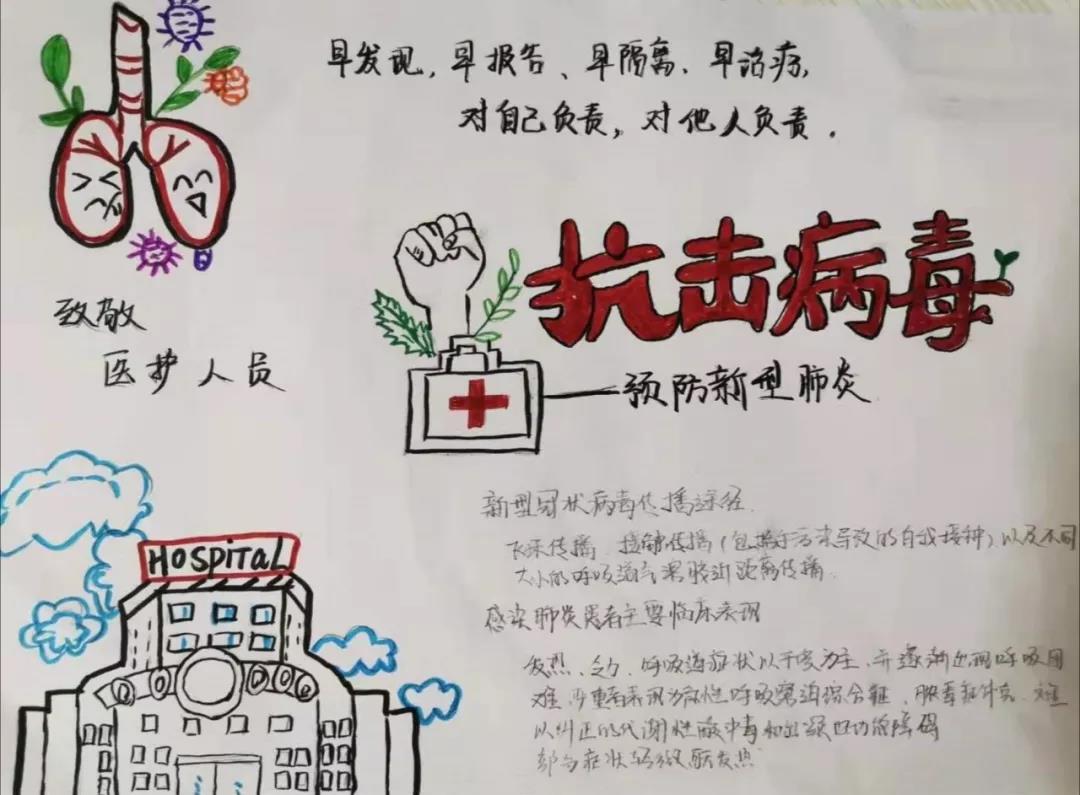 早发现，早报告、早隔离、早治疗，
对自己负责，对他人负责．
抗击病毒
致敬
医护人员
预防新型肺炎
HOSPITAL
新型冠状病毒传播途经
飞沫传播 接触传播（包括手污染导致的自我接种）以及不同
大小的呼吸道气溶胶近距离传播
感染肺炎患者主要临床表现
发热、乏力、呼吸道症状以干咳为主、并逐渐出现呼吸困
难，严重者表现为急性呼吸窘迫综合征、脓毒症休克、难
以纠正的代谢性酸中毒和出凝血功能障碍
部分症状轻微